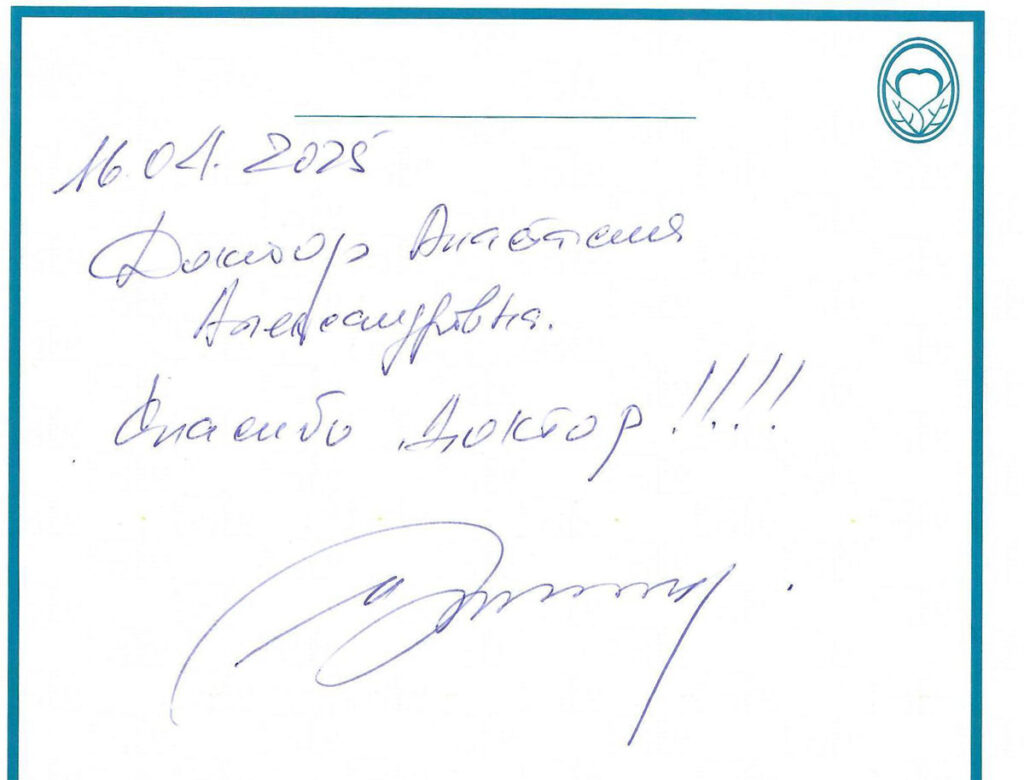 16.04.2025
Доктор Анастасия
Александровна.
Спасибо Доктор!!!!